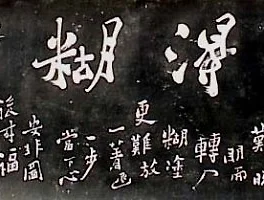 得糊
難
明而
轉入
糊塗
更難放
一著退
一步
當下心
安非圖
後来福